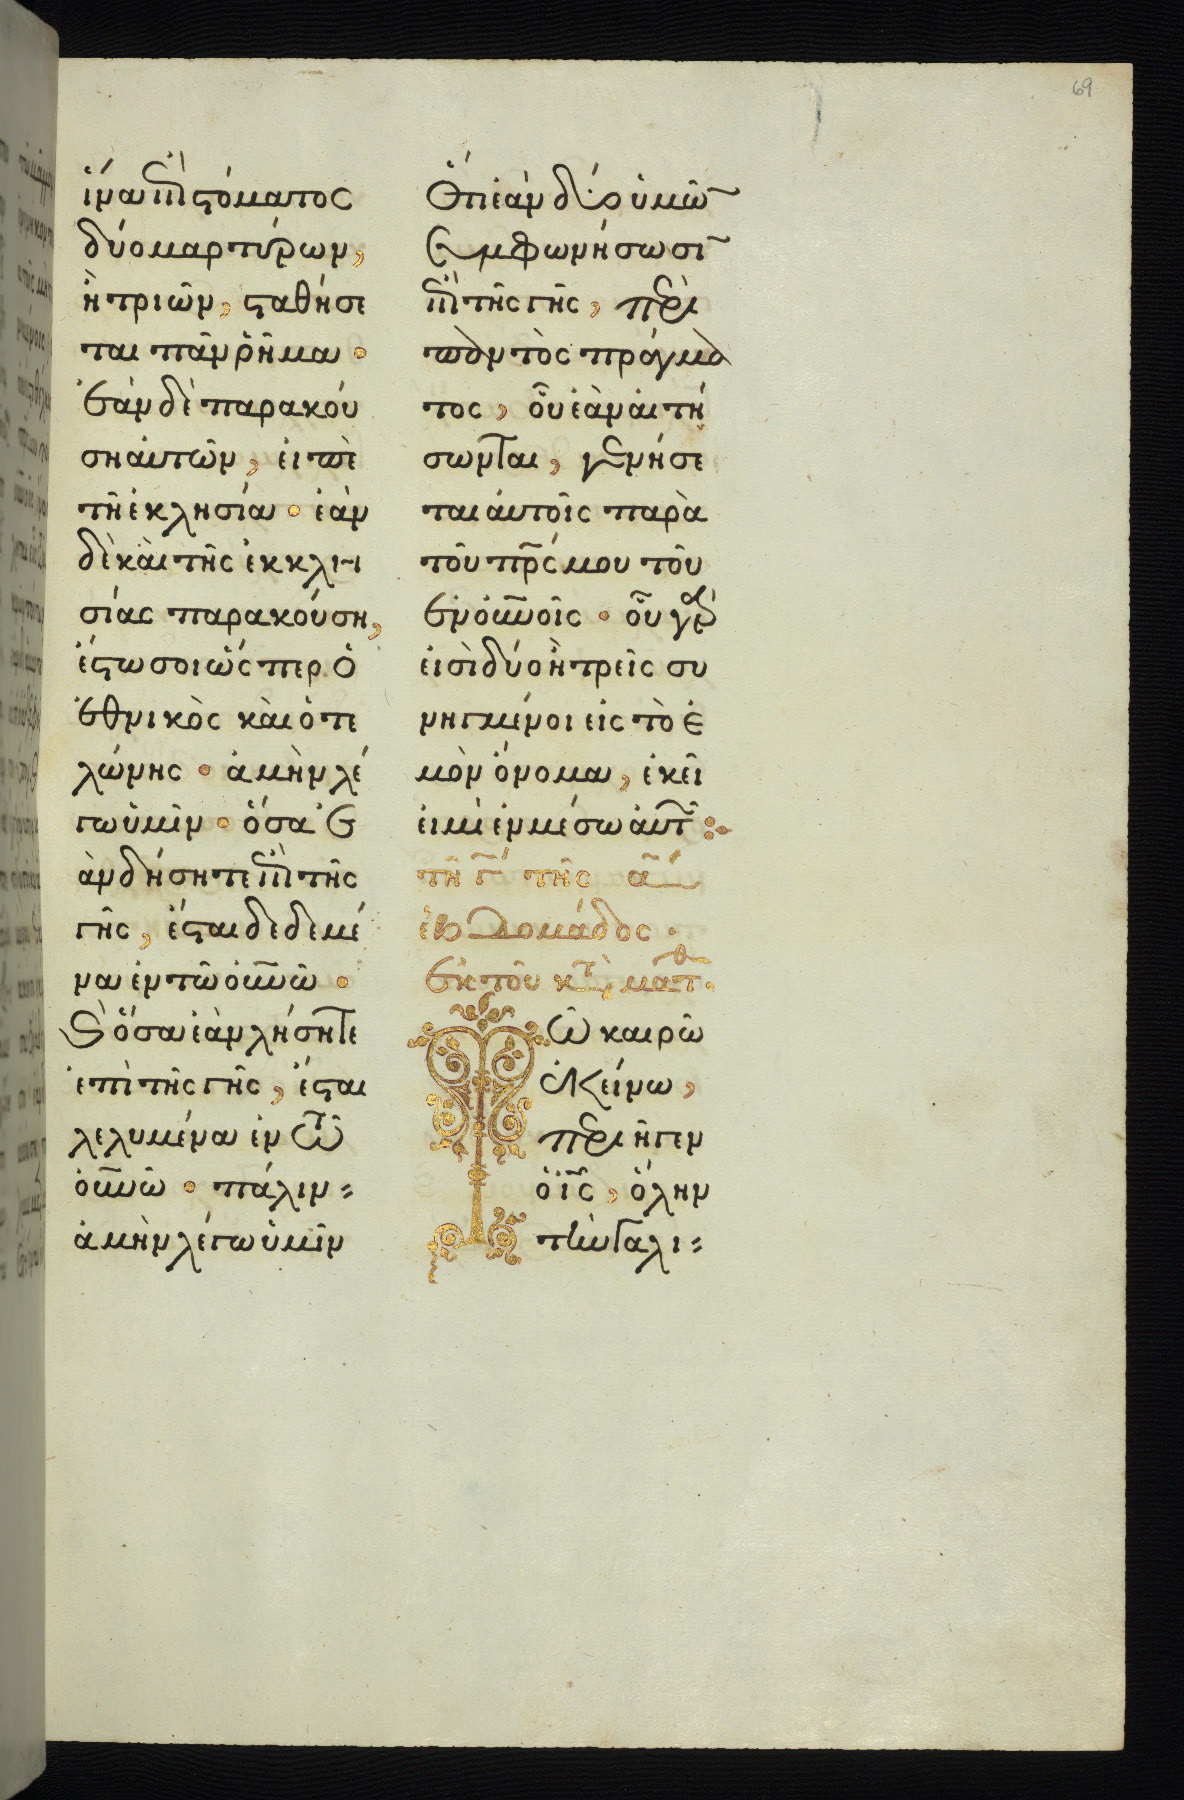 69
ἵνα ἐπὶ στόματος
δύο μαρτύρων,
ἢ τριῶν, σταθήσε
ται πᾶν ῥῆμα ·
ἐὰν δὲ παρακού
ση αὐτῶν, εἰπὲ
τῆ ἐκλησία · ἐὰν
δὲ καὶ τῆς ἐκκλη
σίας παρακούση,
ἔστω σοι ὥς περ ὁ
ἐθνικὸς καὶ ὁ τε
λώνης · ἀμὴν λέ
γω ὑμῖν · ὅσα ἐ
ὰν δήσητε ἐπὶ τῆς
γῆς, ἔσται δεδεμέ
να ἐν τῶ οὐνῶ ·
Ϗ ὅσα ἐὰν λήσητε
ἐπὶ τῆς γῆς, ἔσται
λελυμένα ἐν τῶ
οὐνῶ · πάλιν
ἀμὴν λέγω ὑμῖν
Ὅτι ἐὰν δύο ὑμῶ
συμφωνήσωσι
ἐπὶ τῆς γῆς, περὶ
παντὸς πράγμα
τος, οὗ ἐὰν αἰτή
σωνται, γενήσε
ται αὐτοῖς παρὰ
τοῦ πρς μου τοῦ
ἐν οὐνοῖς · οὗ γάρ
εἰσὶ δύο ἢ τρεῖς συ
νηγμένοι εἰς τὸ ἐ
μὸν ὄνομα, ἐκεῖ
εἰμὶ ἐν μέσω αὐτ
τῆ γ τῆς α
ἑβδομάδος ·
Ἐκ τοῦ κτ ματθ
Τῶ καιρῶ
ἐκείνω,
περιῆγεν
ὁ ις, ὅλην
τὴν γαλι